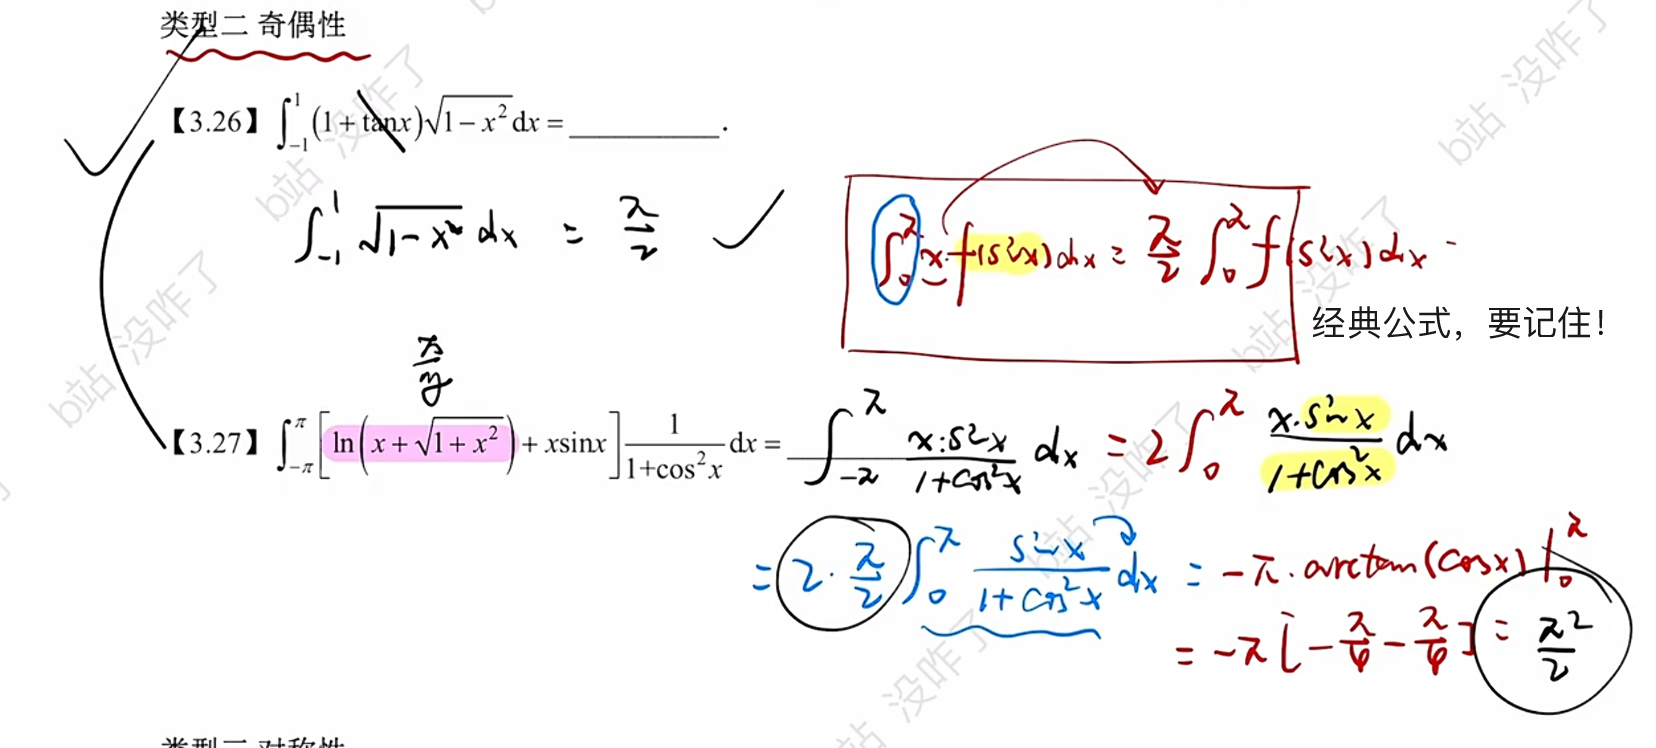 类型二 奇偶性
【3.26】 ∫_{-1}^{1} (1 + tanx)√(1 − x²) dx = ________.
∫_{-1}^{1} √(1−x²) dx = π/2
∫_0^π x·f(sinx)dx = π/2 ∫_0^π f(sinx)dx
经典公式，要记住！
奇
【3.27】 ∫_{-π}^{π} [ln(x + √(1 + x²)) + xsinx] 1/(1+cos²x) dx = ________ ∫_{-π}^{π} x·sinx/(1+cos²x) dx = 2∫_0^π x·sinx/(1+cos²x) dx
= 2·π/2 ∫_0^π sinx/(1+cos²x) dx = −π·arctan(cosx)|_0^π
= −π[−π/4 − π/4] = π²/2
类型三 对称性
b站 没咋了
b站 没咋了
b站 没咋了
b站 没咋了
b站 没咋了
b站 没咋了
没咋了
没咋了